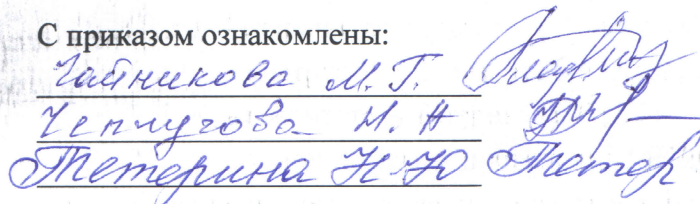 С приказом ознакомлены:
Чайникова М. Г.
Чеплугова Н. Н
Тетерина Н. Ю Тетер